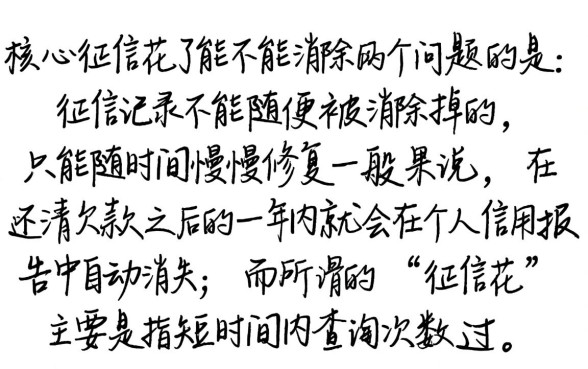 核心征信花了能不能消除两个问题的是：
征信记录不能随便被消除掉的，
只能随时间慢慢修复一般果说，在
还清欠款之后的一年内就会在个人信用报
告中自动消失；而所谓的“征信花”
主要是指短时间内查询次数过。